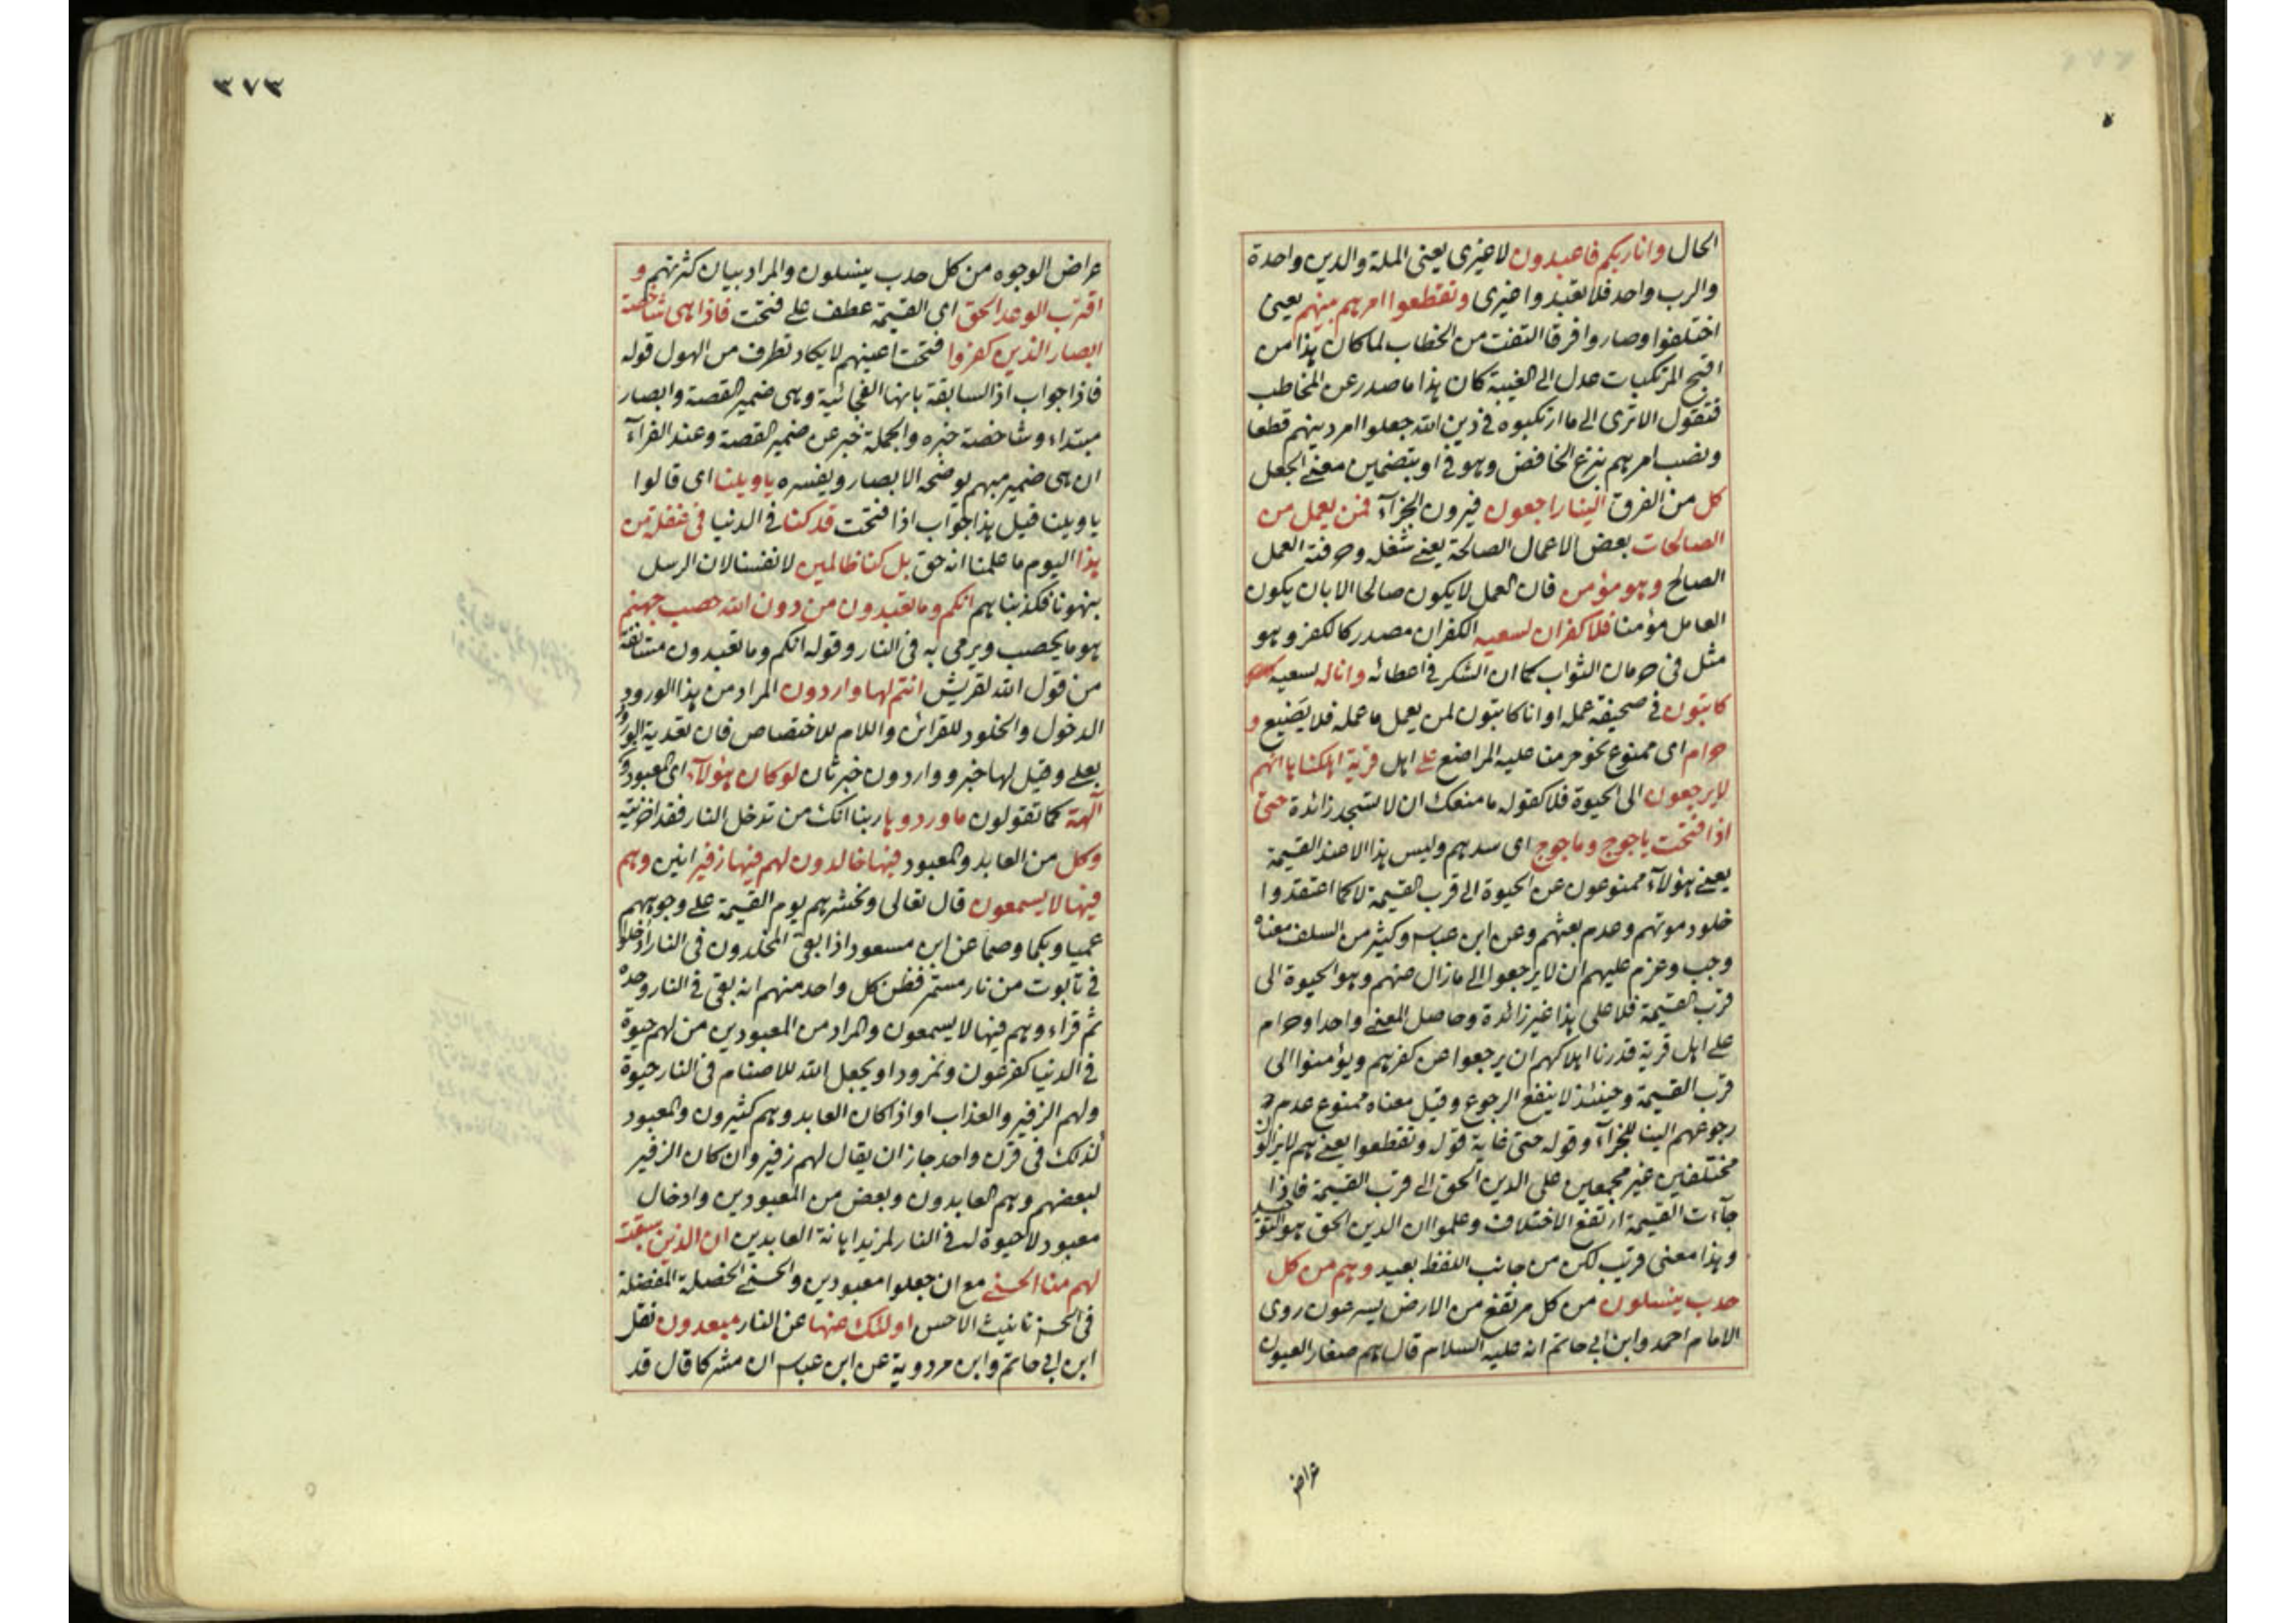 الحال وانا ربكم فاعبدون لا غيرى يعنى الملة والدين واحدة
والرب واحد فلا تعبدوا غيرى وتقطعوا امرهم بينهم يعنى
اختلفوا وصاروا فرقا التفت من الخطاب لما كان هذا من
اقبح المرتكبات عدل الى الغيبة كان هذا ما صدر عن المخاطب
فتقول الا ترى الى ما ارتكبوه فى دين الله جعلوا امر دينهم قطعا
ونصب امرهم بنزع الخافض وهو فى او بتضمين معنى الجعل
كل من الفرق الينا راجعون فيرون الجزآء فمن يعمل من
الصالحات بعض الاعمال الصالحة يعنى شغله وحرفته العمل
الصالح وهو مؤمن فان العمل لا يكون صالحا الا بان يكون
العامل مؤمنا فلا كفران لسعيه الكفران مصدر كالكفر وهو
مثل فى حرمان الثواب كما ان الشكر فى اعطائه وانا له لسعيه
كاتبون فى صحيفة عمله او انا كاتبون لمن يعمل ما عمله فلا يضيع و
حرام اى ممنوع نحو حرمنا عليه المراضع على اهل قرية اهلكناها انهم
لا يرجعون الى الحيوة فلا كقوله ما منعك ان لا تسجد زائدة حتى
اذا فتحت ياجوج وماجوج اى سدهم وليس هذا الا عند القيمة
يعنى هؤلآء ممنوعون عن الحيوة الى قرب القيمة لا كما اعتقدوا
خلود موتهم وعدم بعثهم وعن ابن عباس وكثير من السلف معناه
وجب وعزم عليهم ان لا يرجعوا الى ما زال عنهم وهو الحيوة الى
قرب القيمة فلا على هذا غير زائدة وحاصل المعنى واحد او حرام
على اهل قرية قدرنا اهلاكهم ان يرجعوا عن كفرهم ويؤمنوا الى
قرب القيمة وحينئذ لا ينفع الرجوع وقيل معناه ممنوع عدم
رجوعهم الينا للجزآء وقوله حتى غاية قوله وتقطعوا يعنى هم لا يزالون
مختلفين غير مجمعين على الدين الحق الى قرب القيمة فاذا
جآءت القيمة ارتفع الاختلاف وعلموا ان الدين الحق هو التوحيد
وهذا معنى قريب لكن من جانب اللفظ بعيد وهم من كل
حدب ينسلون من كل مرتفع من الارض يسرعون روى
الامام احمد وابن ابى حاتم انه عليه السلام قال هم صغار العيون
عراض
٣٧٣
عراض الوجوه من كل حدب ينسلون والمراد بيان كثرتهم و
اقترب الوعد الحق اى القيمة عطف على فتحت فاذا هى شاخصة
ابصار الذين كفروا فتحت اعينهم لا يكاد تطرف من الهول قوله
فاذا جواب اذا السابقة بانها الفجائية وهى ضمير القصة وابصار
مبتداء وشاخصة خبره والجملة خبر عن ضمير القصة وعند الفرآء
ان هى ضمير مبهم يوضحه الابصار ويفسره يا ويلنا اى قالوا
يا ويلنا قيل هذا جواب اذا فتحت قد كنا فى الدنيا فى غفلة من
هذا اليوم ما علمنا انه حق بل كنا ظالمين لانفسنا لان الرسل
ينهونا فكذبناهم انكم وما تعبدون من دون الله حصب جهنم
هو ما يحصب ويرمى به فى النار وقوله انكم وما تعبدون مستانفة
من قول الله لقريش انتم لها واردون المراد من هذا الورود
الدخول والخلود للقرائن واللام للاختصاص فان تعدية الورود
بعلى وقيل لها خبر وواردون خبر ثان لو كان هؤلآء اى المعبودون
آلهة كما تقولون ما وردوها ربنا انك من تدخل النار فقد اخزيته
وكل من العابد والمعبود فيها خالدون لهم فيها زفير انين وهم
فيها لا يسمعون قال تعالى ونحشرهم يوم القيمة على وجوههم
عميا وبكما وصما عن ابن مسعود اذا بقى المخلدون فى النار ادخلوا
فى تابوت من نار مستمر فظن كل واحد منهم انه بقى فى النار وحده
ثم قراء وهم فيها لا يسمعون والمراد من المعبودين من لهم حيوة
فى الدنيا كفرعون ونمرود او يجعل الله للاصنام فى النار حيوة
ولهم الزفير والعذاب او اذا كان العابد وهم كثيرون والمعبود
كذلك فى قرن واحد جاز ان يقال لهم زفير وان كان الزفير
لبعضهم وهم العابدون وبعض من المعبودين وادخال
معبود لا حيوة له فى النار لمزيد اهانة العابدين ان الذين سبقت
لهم منا الحسنى مع ان جعلوا معبودين والحسنى الخصلة المفضلة
فى الحسن تانيث الاحسن اولئك عنها عن النار مبعدون نقل
ابن ابى حاتم وابن مردوية عن ابن عباس ان مشركا قال قد